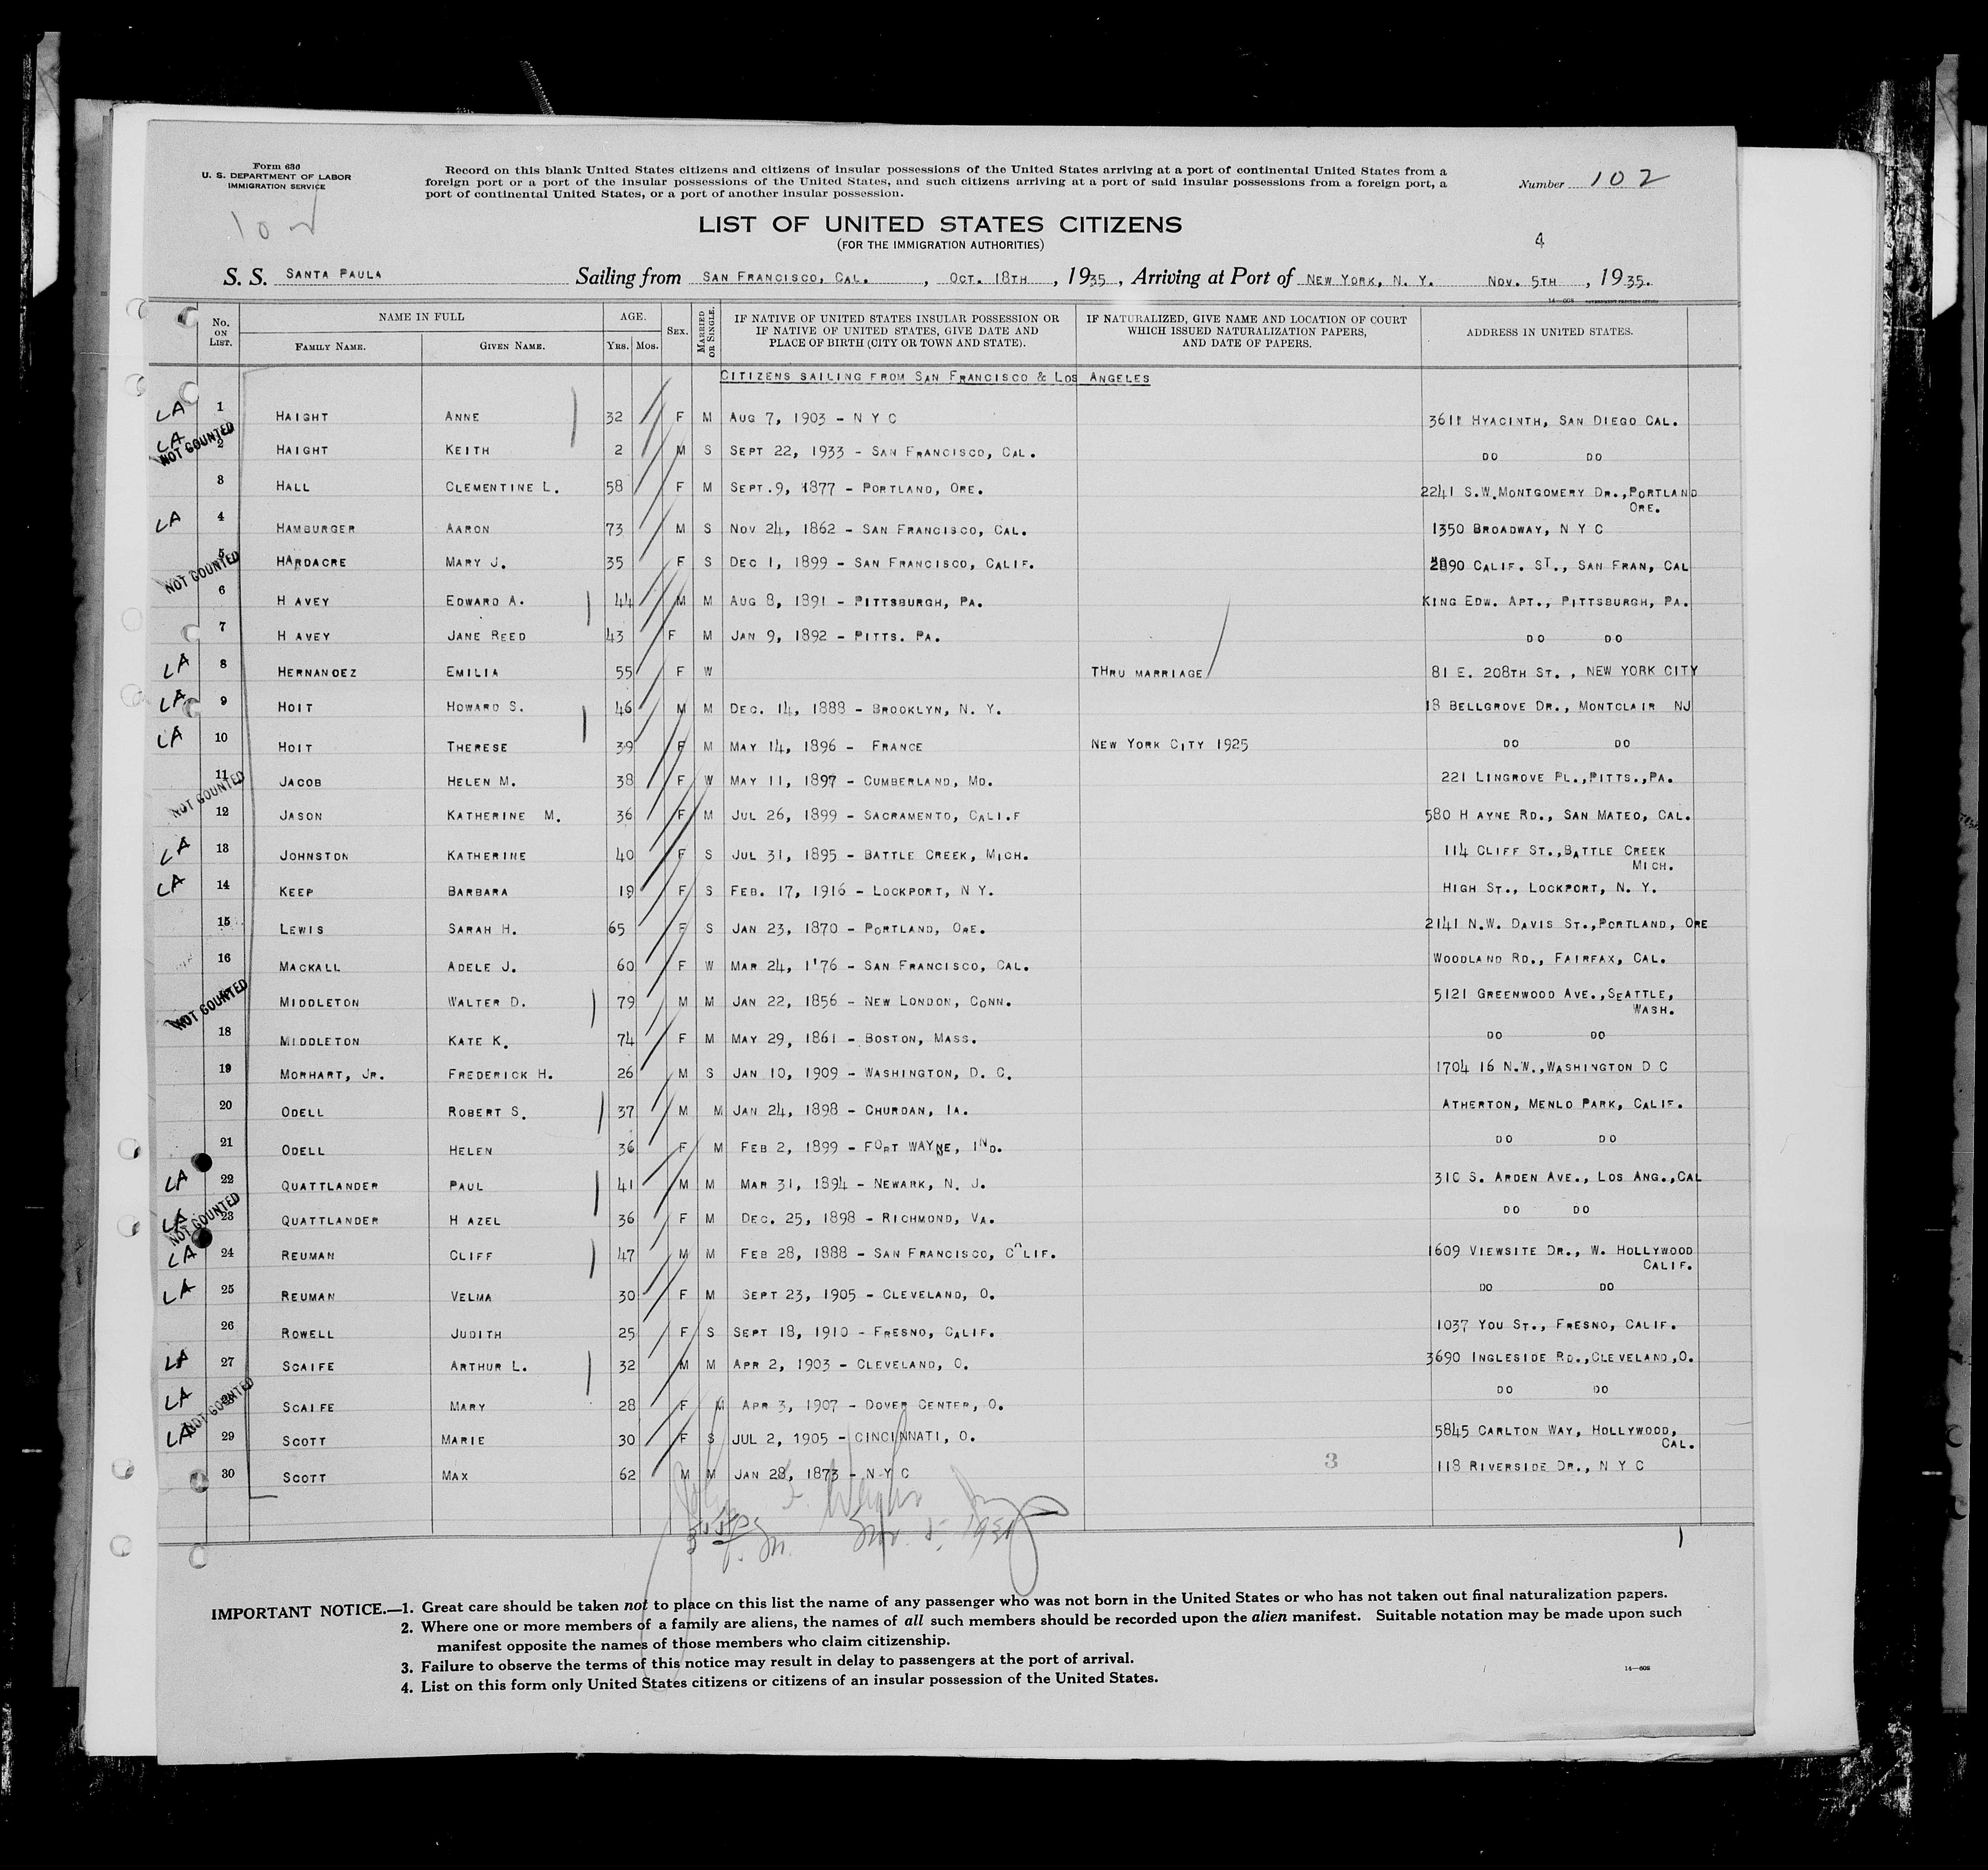 Form 630
U. S. DEPARTMENT OF LABOR
IMMIGRATION SERVICE
Record on this blank United States citizens and citizens of insular possessions of the United States arriving at a port of continental United States from a
foreign port or a port of the insular possessions of the United States, and such citizens arriving at a port of said insular possessions from a foreign port, a
port of continental United States, or a port of another insular possession.
Number 102
102
LIST OF UNITED STATES CITIZENS
(FOR THE IMMIGRATION AUTHORITIES)
4
S. S. SANTA PAULA Sailing from SAN FRANCISCO, CAL. , OCT. 18TH , 1935 , Arriving at Port of NEW YORK, N. Y. NOV. 5TH , 1935.
No. ON LIST. NAME IN FULL FAMILY NAME. GIVEN NAME. AGE. YRS. MOS. SEX. MARRIED OR SINGLE. IF NATIVE OF UNITED STATES INSULAR POSSESSION OR IF NATIVE OF UNITED STATES, GIVE DATE AND PLACE OF BIRTH (CITY OR TOWN AND STATE). IF NATURALIZED, GIVE NAME AND LOCATION OF COURT WHICH ISSUED NATURALIZATION PAPERS, AND DATE OF PAPERS. ADDRESS IN UNITED STATES.
CITIZENS SAILING FROM SAN FRANCISCO & LOS ANGELES
LA 1 HAIGHT ANNE 32 F M AUG 7, 1903 - N Y C 3611 HYACINTH, SAN DIEGO CAL.
LA NOT COUNTED 2 HAIGHT KEITH 2 M S SEPT 22, 1933 - SAN FRANCISCO, CAL. DO DO
3 HALL CLEMENTINE L. 58 F M SEPT.9, 1877 - PORTLAND, ORE. 2241 S.W.MONTGOMERY DR.,PORTLAND
ORE.
LA 4 HAMBURGER AARON 73 M S NOV 24, 1862 - SAN FRANCISCO, CAL. 1350 BROADWAY, N Y C
NOT COUNTED 5 HARDACRE MARY J. 35 F S DEC 1, 1899 - SAN FRANCISCO, CALIF. CALIF. ST., SAN FRAN, CAL
6 H AVEY EDWARD A. 44 M M AUG 8, 1891 - PITTSBURGH, PA. KING EDW. APT., PITTSBURGH, PA.
7 H AVEY JANE REED 43 F M JAN 9, 1892 - PITTS. PA. DO DO
LA 8 HERNANDEZ EMILIA 55 F W THRU MARRIAGE 81 E. 208TH ST. , NEW YORK CITY
LA 9 HOIT HOWARD S. 46 M M DEC. 14, 1888 - BROOKLYN, N. Y. 18 BELLGROVE DR., MONTCLAIR NJ
LA 10 HOIT THERESE 39 F M MAY 14, 1896 - FRANCE NEW YORK CITY 1925 DO DO
NOT COUNTED 11 JACOB HELEN M. 38 F W MAY 11, 1897 - CUMBERLAND, MD. 221 LINGROVE PL.,PITTS.,PA.
12 JASON KATHERINE M. 36 F M JUL 26, 1899 - SACRAMENTO, CALI.F 580 H AYNE RD., SAN MATEO, CAL.
LA 13 JOHNSTON KATHERINE 40 F S JUL 31, 1895 - BATTLE CREEK, MICH. 114 CLIFF ST.,BATTLE CREEK
MICH.
LA 14 KEEP BARBARA 19 F S FEB. 17, 1916 - LOCKPORT, N Y. HIGH ST., LOCKPORT, N. Y.
15 LEWIS SARAH H. 65 F S JAN 23, 1870 - PORTLAND, ORE. 2141 N.W. DAVIS ST.,PORTLAND, ORE
16 MACKALL ADELE J. 60 F W MAR 24, 1'76 - SAN FRANCISCO, CAL. WOODLAND RD., FAIRFAX, CAL.
NOT COUNTED MIDDLETON WALTER D. 79 M M JAN 22, 1856 - NEW LONDON, CONN. 5121 GREENWOOD AVE.,SEATTLE,
WASH.
18 MIDDLETON KATE K. 74 F M MAY 29, 1861 - BOSTON, MASS. DO DO
19 MORHART, JR. FREDERICK H. 26 M S JAN 10, 1909 - WASHINGTON, D. C. 1704 16 N.W.,WASHINGTON D C
20 ODELL ROBERT S. 37 M M JAN 24, 1898 - CHURDAN, IA. ATHERTON, MENLO PARK, CALIF.
21 ODELL HELEN 36 F M FEB 2, 1899 - FORT WAYNE, IND. DO DO
LA 22 QUATTLANDER PAUL 41 M M MAR 31, 1894 - NEWARK, N. J. 310 S. ARDEN AVE., LOS ANG.,CAL
LA NOT COUNTED 23 QUATTLANDER H AZEL 36 F M DEC. 25, 1898 - RICHMOND, VA. DO DO
LA 24 REUMAN CLIFF 47 M M FEB 28, 1888 - SAN FRANCISCO, CALIF. 1609 VIEWSITE DR., W. HOLLYWOOD
CALIF.
LA 25 REUMAN VELMA 30 F M SEPT 23, 1905 - CLEVELAND, O. DO DO
26 ROWELL JUDITH 25 F S SEPT 18, 1910 - FRESNO, CALIF. 1037 YOU ST., FRESNO, CALIF.
LA 27 SCAIFE ARTHUR L. 32 M M APR 2, 1903 - CLEVELAND, O. 3690 INGLESIDE RD.,CLEVELAND,O.
LA NOT COUNTED SCAIFE MARY 28 F M APR 3, 1907 - DOVER CENTER, O. DO DO
LA 29 SCOTT MARIE 30 F S JUL 2, 1905 - CINCINNATI, O. 5845 CARLTON WAY, HOLLYWOOD,
CAL.
30 SCOTT MAX 62 M M JAN 28, 1873 - N Y C 118 RIVERSIDE DR., N Y C
3
IMPORTANT NOTICE.—1. Great care should be taken not to place on this list the name of any passenger who was not born in the United States or who has not taken out final naturalization papers.
2. Where one or more members of a family are aliens, the names of all such members should be recorded upon the alien manifest. Suitable notation may be made upon such
manifest opposite the names of those members who claim citizenship.
3. Failure to observe the terms of this notice may result in delay to passengers at the port of arrival.
4. List on this form only United States citizens or citizens of an insular possession of the United States.